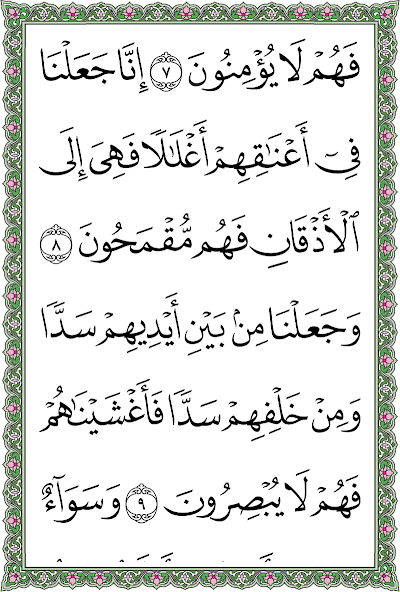 فَهُمْ لَا يُؤْمِنُونَ ٧ إِنَّا جَعَلْنَا
فِىٓ أَعْنَٰقِهِمْ أَغْلَٰلًا فَهِىَ إِلَى
ٱلْأَذْقَانِ فَهُم مُّقْمَحُونَ ٨
وَجَعَلْنَا مِنۢ بَيْنِ أَيْدِيهِمْ سَدًّا
وَمِنْ خَلْفِهِمْ سَدًّا فَأَغْشَيْنَٰهُمْ
فَهُمْ لَا يُبْصِرُونَ ٩ وَسَوَآءٌ